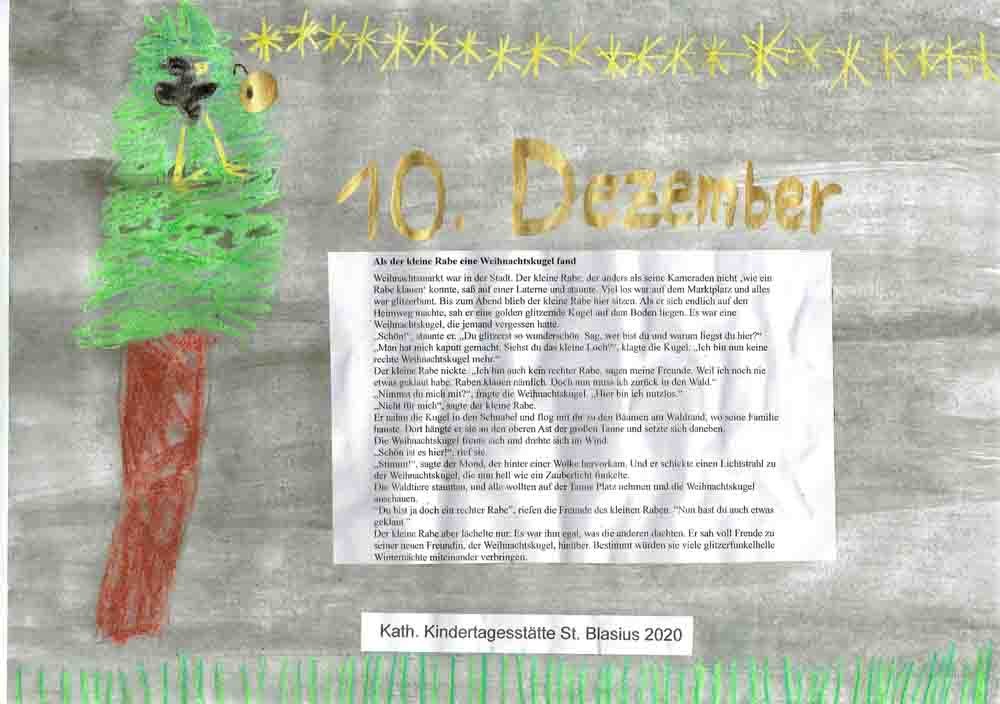 10. Dezember
Als der kleine Rabe eine Weihnachtskugel fand
Weihnachtsmarkt war in der Stadt. Der kleine Rabe, der anders als seine Kameraden nicht ‚wie ein
Rabe klauen‘ konnte, saß auf einer Laterne und staunte. Viel los war auf dem Marktplatz und alles
war glitzerbunt. Bis zum Abend blieb der kleine Rabe hier sitzen. Als er sich endlich auf den
Heimweg machte, sah er eine golden glitzernde Kugel auf dem Boden liegen. Es war eine
Weihnachtskugel, die jemand vergessen hatte.
„Schön!“, staunte er. „Du glitzerst so wunderschön. Sag, wer bist du und warum liegst du hier?“
„Man hat mich kaputt gemacht. Siehst du das kleine Loch?“, klagte die Kugel. „Ich bin nun keine
rechte Weihnachtskugel mehr.“
Der kleine Rabe nickte. „Ich bin auch kein rechter Rabe, sagen meine Freunde. Weil ich noch nie
etwas geklaut habe. Raben klauen nämlich. Doch nun muss ich zurück in den Wald.“
„Nimmst du mich mit?“, fragte die Weihnachtskugel. „Hier bin ich nutzlos.“
„Nicht für mich“, sagte der kleine Rabe.
Er nahm die Kugel in den Schnabel und flog mit ihr zu den Bäumen am Waldrand, wo seine Familie
hauste. Dort hängte er sie an den oberen Ast der großen Tanne und setzte sich daneben.
Die Weihnachtskugel freute sich und drehte sich im Wind.
„Schön ist es hier!“, rief sie.
„Stimmt!“, sagte der Mond, der hinter einer Wolke hervorkam. Und er schickte einen Lichtstrahl zu
der Weihnachtskugel, die nun hell wie ein Zauberlicht funkelte.
Die Waldtiere staunten, und alle wollten auf der Tanne Platz nehmen und die Weihnachtskugel
anschauen.
“Du bist ja doch ein rechter Rabe”, riefen die Freunde des kleinen Raben. “Nun hast du auch etwas
geklaut.”
Der kleine Rabe aber lächelte nur. Es war ihm egal, was die anderen dachten. Er sah voll Freude zu
seiner neuen Freundin, der Weihnachtskugel, hinüber. Bestimmt würden sie viele glitzerfunkelhelle
Winternächte miteinander verbringen.
Kath. Kindertagesstätte St. Blasius 2020